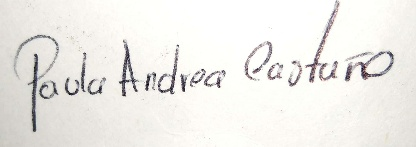 Paula Andrea Castaño